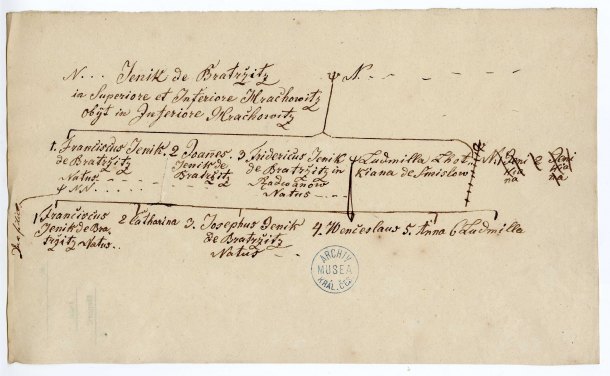 N. . . Jenik de Bratržitz
in Superiore et Inferiore Hrachowitz
obijt in Inferiore Hrachowitz
ψ N. – – – –
1. Franciscus Jenik
de Bratržitz
Natus – – –
ψ N N. – – –
2 Joañes
Jenik de
Bratržitz
3 Fridericus Jenik
de Bratržitz in
Radwanow
Natus – – –
ψ Ludmilla Lhot
kiana de Smislow
N. 1 Jeni
kia
na
2 Jeni
kia
na
1 Franciscus
Jenik de Bra
tržitz Natus..
2 Catharina
3. Josephus Jenik
de Bratržitz
Natus –
4. Wenceslaus
5. Anna
6 Ludmilla
ARCHIV
MUSEA
KRÁL. ČES.